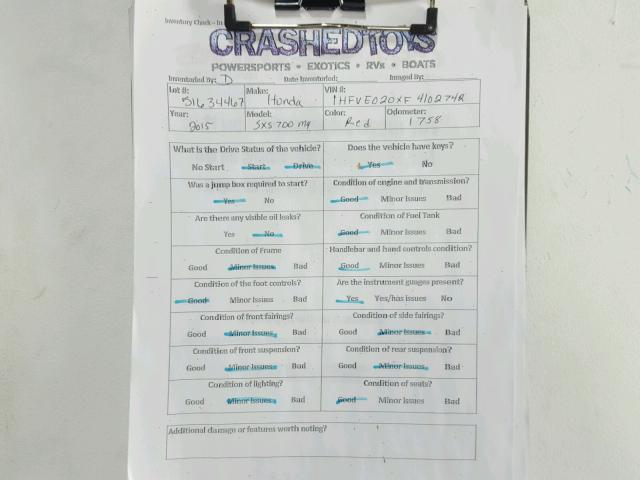 Inventory Check - In
CRASHEDTOYS
POWERSPORTS • EXOTICS • RVs • BOATS
Inventoried By: D Date Inventoried: Imaged By:
Lot #: 51634467 Make: Honda VIN #: 1HFVE020XF4102742
Year: 2015 Model: SXS 700 M4 Color: Red Odometer: 1758
What is the Drive Status of the vehicle? Does the vehicle have keys?
No Start Start Drive Yes No
Was a jump box required to start? Condition of engine and transmission?
Yes No Good Minor Issues Bad
Are there any visible oil leaks? Condition of Fuel Tank
Yes No Good Minor Issues Bad
Condition of Frame Handlebar and hand controls condition?
Good Minor Issues Bad Good Minor Issues Bad
Condition of the foot controls? Are the instrument guages present?
Good Minor Issues Bad Yes Yes/has issues No
Condition of front fairings? Condition of side fairings?
Good Minor Issues Bad Good Minor Issues Bad
Condition of front suspension? Condition of rear suspension?
Good Minor Issues Bad Good Minor Issues Bad
Condition of lighting? Condition of seats?
Good Minor Issues Bad Good Minor Issues Bad
Additional damage or features worth noting?